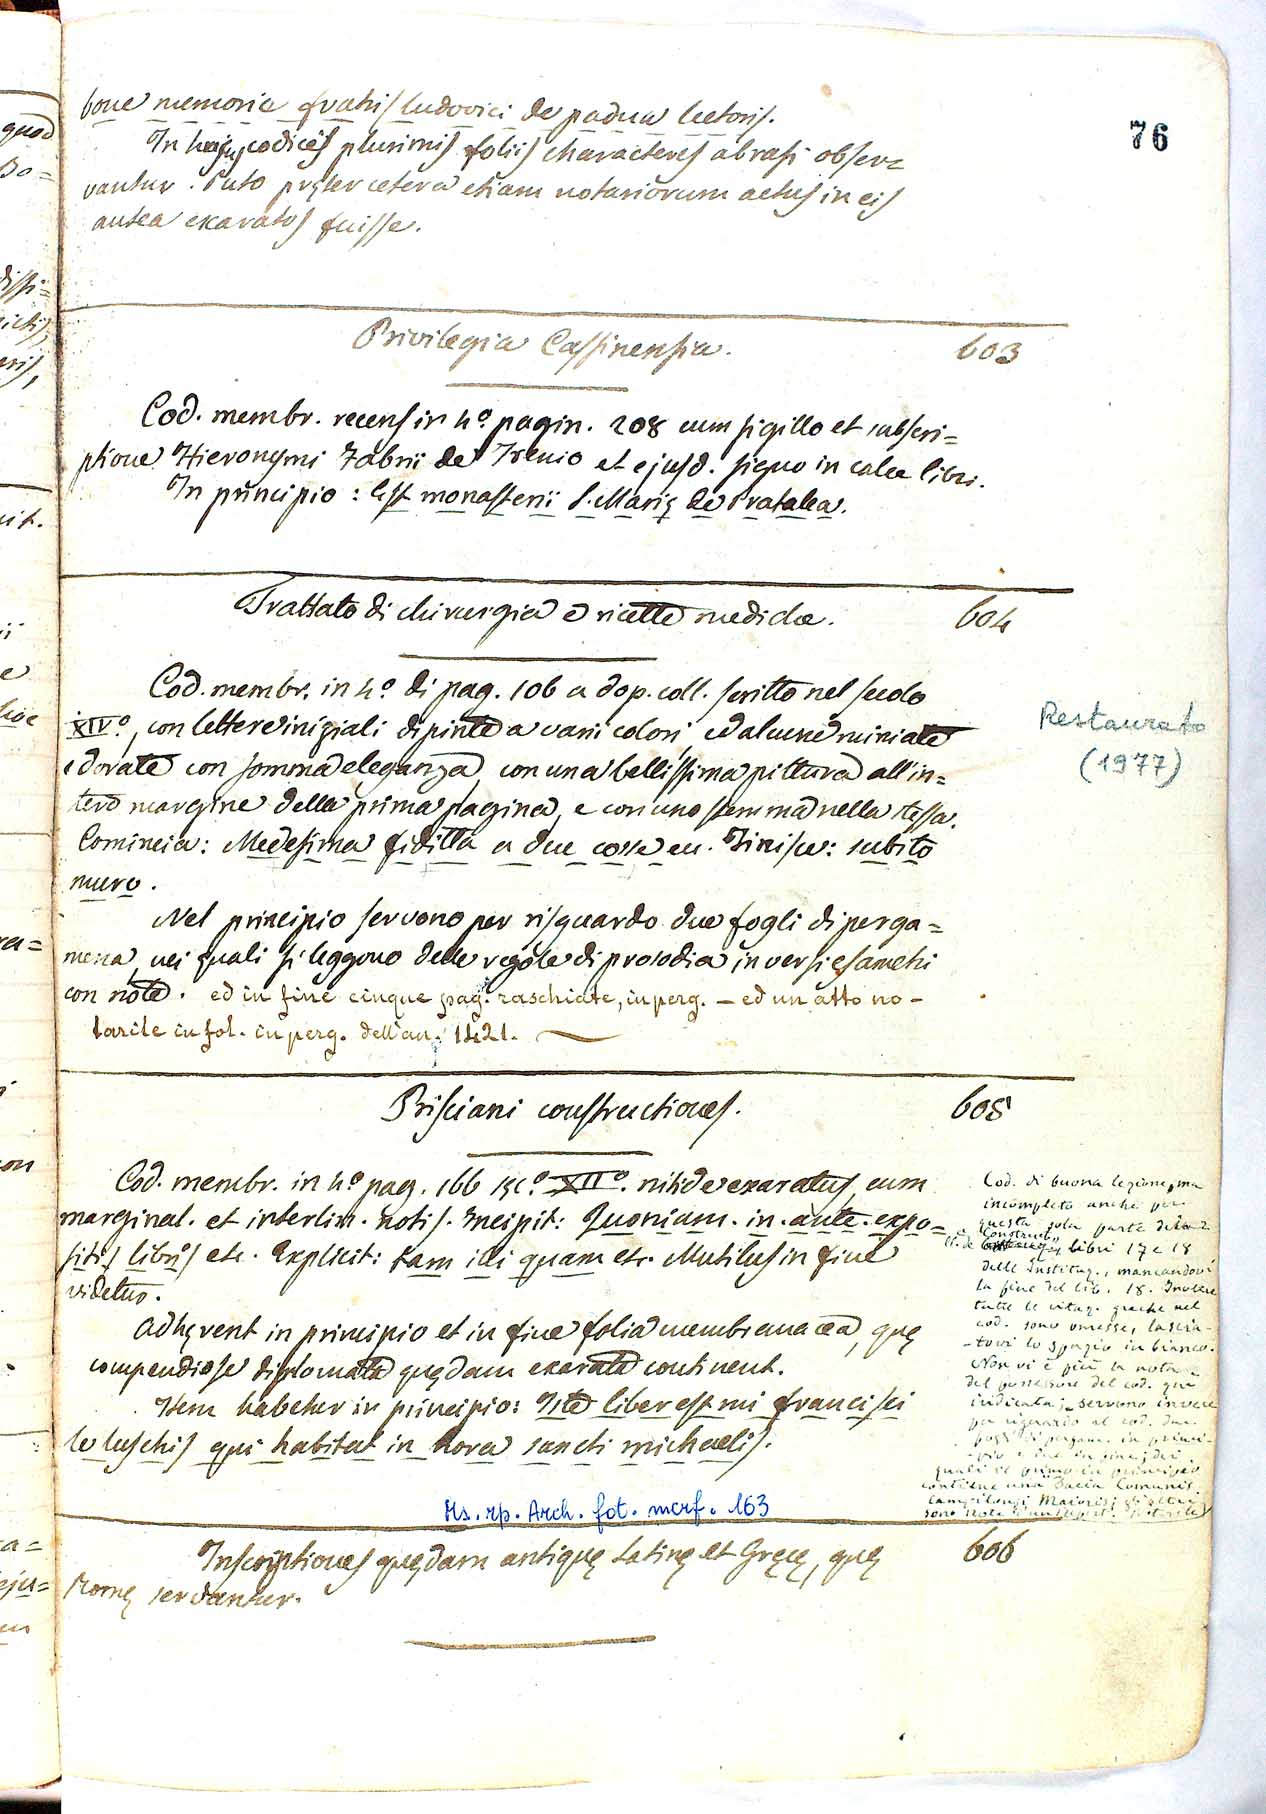 76
bone memorie fratris ludovici de padua lectoris.
In hujus codicis plurimis foliis characteres abrasi obser=
vantur. Puto pręter cetera etiam notariorum actus in eis
antea exaratos fuisse.
Privilegia Cassinensia. 603
Cod. membr. recens in 4.º pagin. 208 cum sigillo et subscri=
ptione Hieronymi Fabrii de Trevio et ejusd. signo in calce libri.
In principio: Est monasterii S. Marię de Pratalea.
Trattato di chirurgia e ricette mediche. 604
Cod. membr. in 4.º di pag. 106 a dop. coll. scritto nel secolo
XIV.º, con lettere iniziali dipinte a varii colori ed alcune miniate
e dorate con somma eleganza, con una bellissima pittura all'in=
tero margine della prima pagina, e con uno stemma nella stessa.
Comincia: Medesima fiditta a due cosse Finisce: subito
muro.
Nel principio servono per risguardo due fogli di perga=
mena, nei quali si leggono delle regole di prosodia in versi esametri
con note. ed in fine cinque pag. raschiate, in perg. – ed un atto no-
tarile in fol. in perg. dell'an. 1421.
Restaurato
(1977)
Prisciani constructiones. 605
Cod. membr. in 4.º pag. 166 sęc.º XII.º nitide exaratus, cum
marginal. et interlin. notis. Incipit: Quoniam. in. ante. expo=
sitis libris etc. Explicit: tam illi quam etc. Mutilus in fine
videtur.
Adhęrent in principio et in fine folia membranacea, quę
compendiose diplomata quędam exarata continent.
Item habetur in principio: Iste liber est mi francisci
de luschis qui habitat in hora sancti michaelis.
Cod. di buona lezione, ma
incompleto anche per
questa sola parte della
libri 17 e 18
delle Instituz., mancandovi
la fine del lib. 18. Inoltre
tutte le citaz. greche nel
cod. sono omesse, lascia-
-tovi lo spazio in bianco.
Non vi è più la nota
del possessore del cod. qui
indicata; servono invece
per riguardo al cod. due
fogli di pergam. in princi-
-pio e due in fine; dei
quali il primo in principio
contiene una
Maioris; gli altri
sono note
Ms. rp. Arch. fot. mcrf. 163
Inscriptiones quędam antiquę Latinę et Gręcę, quę 606
Romę servantur.